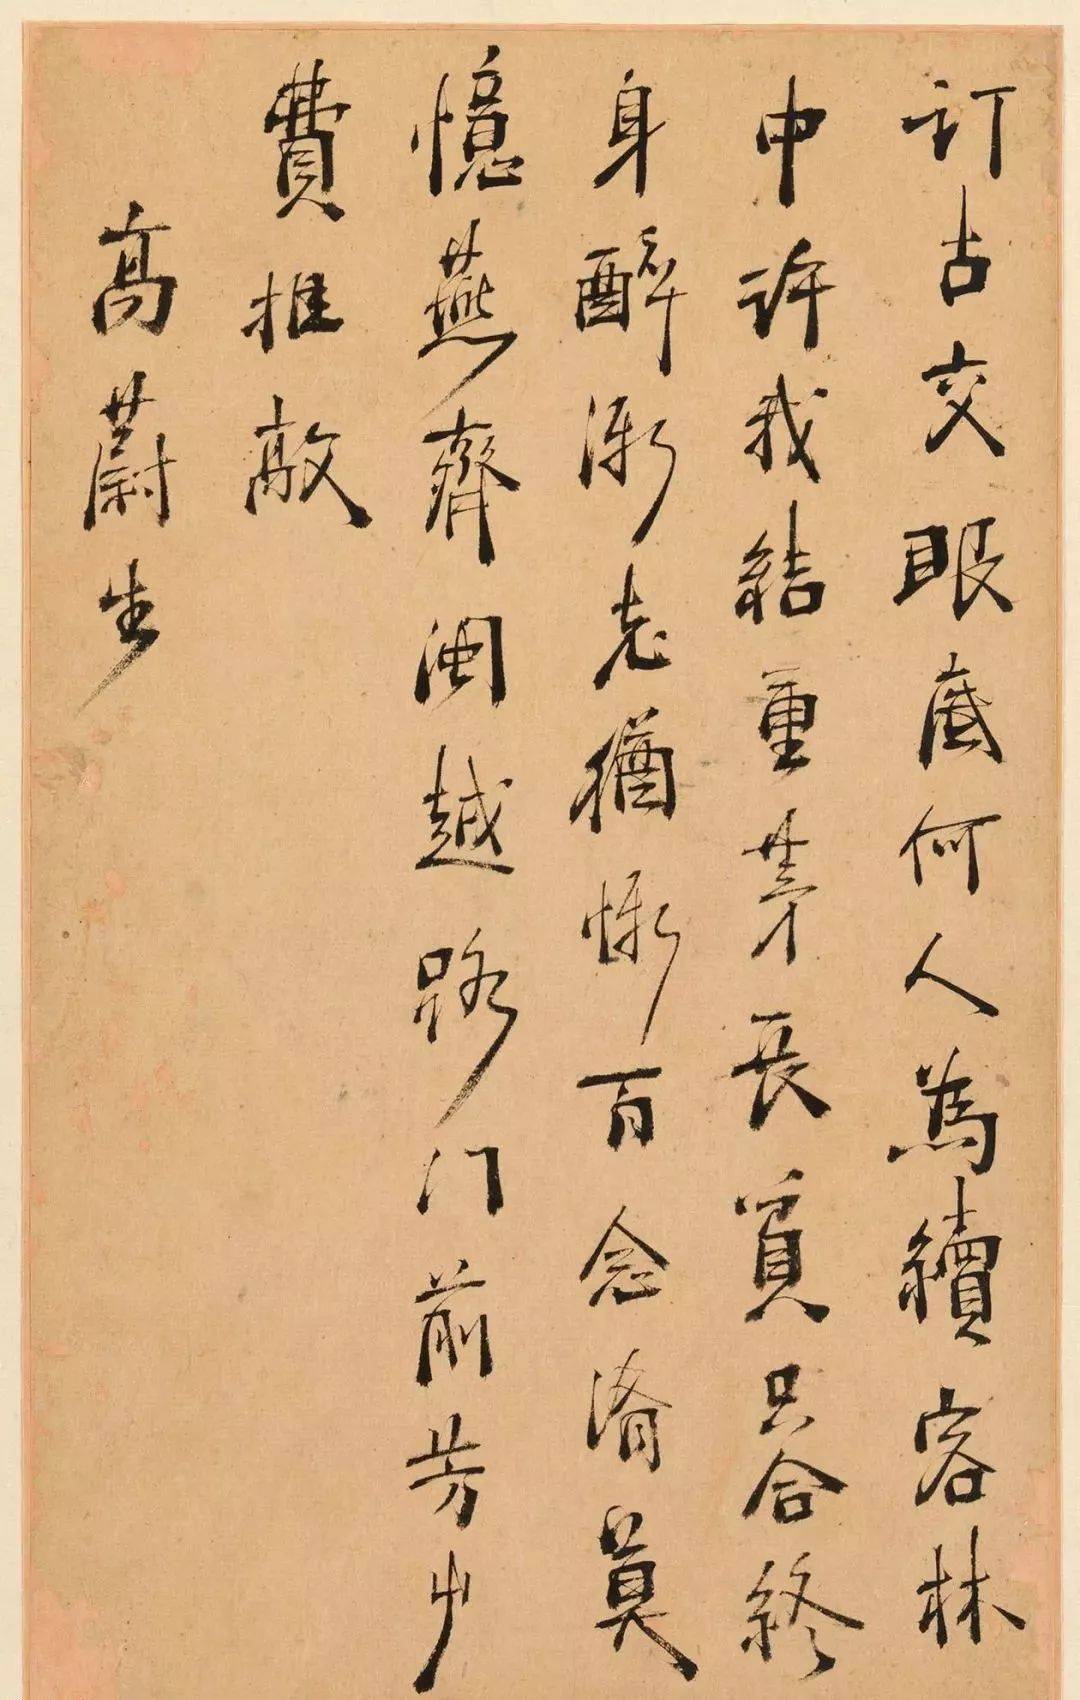 訂古交眼底何人為續客林
中許我結重茅長貧只合終
身醉漸老猶慚百念淆莫
憶燕齊閩越路门前芳屮
費推敲
高蔚生